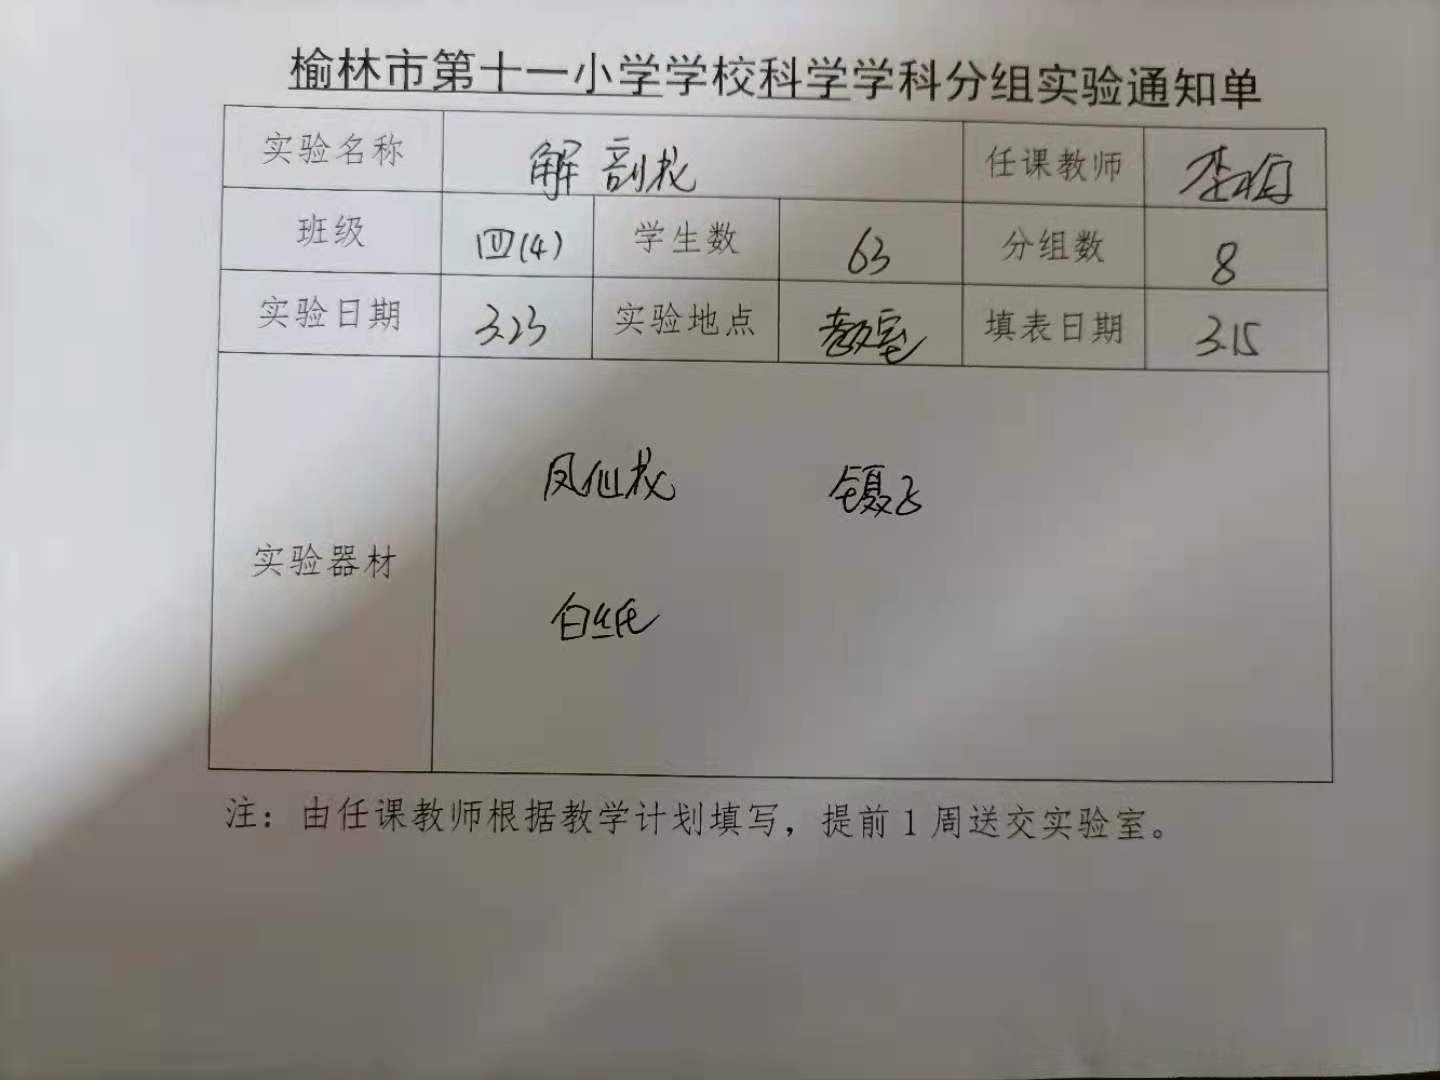 榆林市第十一小学学校科学学科分组实验通知单
实验名称 解剖花 任课教师 李梅
班级 四(4) 学生数 63 分组数 8
实验日期 3.23 实验地点 教室 填表日期 3.15
凤仙花 镊子
实验器材
白纸
注：由任课教师根据教学计划填写，提前1周送交实验室。